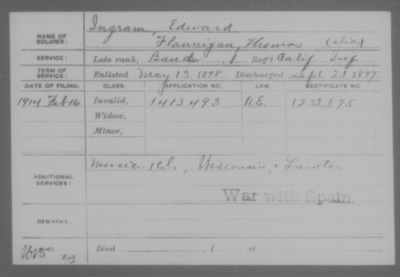 NAME OF SOLDIER: Ingram, Edward
Flannigan, Thomas (alias)
SERVICE: Late rank, Band, 1 Reg't Calif. Inf
TERM OF SERVICE: Enlisted May 13, 1898, Discharged Sept. 21, 1899
DATE OF FILING. CLASS. APPLICATION NO. LAW. CERTIFICATE NO.
1914 Feb 16 Invalid, 1413493 1232575
Widow,
Minor,
ADDITIONAL SERVICES: Music. Wisconsin, Lawton
War with Spain
REMARKS:
Died , 1 at